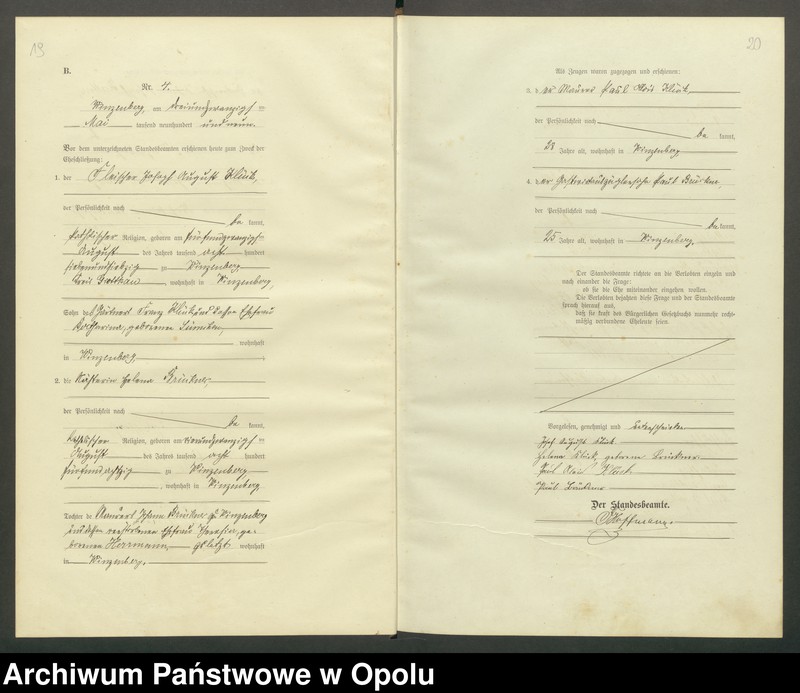 19
B.
Nr. 4.
Winzenberg, am dreiundzwanzigsten
Mai tausend neunhundert und neun
Vor dem unterzeichneten Standesbeamten erschienen heute zum Zweck der
Eheschließung:
1. der Fleischer Joseph August Klink,
der Persönlichkeit nach
be kannt,
katholischer Religion, geboren am
August des Jahres tausend acht hundert
siebenundsiebzig zu Winzenberg
Kreis Grottkau, wohnhaft in Winzenberg
Sohn des Gärtners Franz und dessen Ehefrau
Katharina, geborenen
wohnhaft
in Winzenberg
2. die Helena Brückner
der Persönlichkeit nach
be kannt,
katholischer Religion, geboren am
August des Jahres tausend acht hundert
fünfundachtzig zu Winzenberg
, wohnhaft in Winzenberg
Tochter des Johann Brückner zu Winzenberg
und dessen verstorbenen Ehefrau Theresia, ge-
borenen Herrmann, zuletzt wohnhaft
in Winzenberg.
20
Als Zeugen waren zugezogen und erschienen:
3. der Maurer Paul
der Persönlichkeit nach
be kannt,
28 Jahre alt, wohnhaft in Winzenberg
4. der Paul Brückner,
der Persönlichkeit nach
be kannt,
25 Jahre alt, wohnhaft in Winzenberg.
Der Standesbeamte richtete an die Verlobten einzeln und
nach einander die Frage:
ob sie die Ehe miteinander eingehen wollen.
Die Verlobten bejahten diese Frage und der Standesbeamte
sprach hierauf aus,
daß sie kraft des Bürgerlichen Gesetzbuchs nunmehr recht-
mäßig verbundene Eheleute seien.
Vorgelesen, genehmigt und unterschrieben
August
Helena geborene Brückner
Paul
Paul Brückner
Der Standesbeamte.
Hoffmann.
Archiwum Państwowe w Opolu